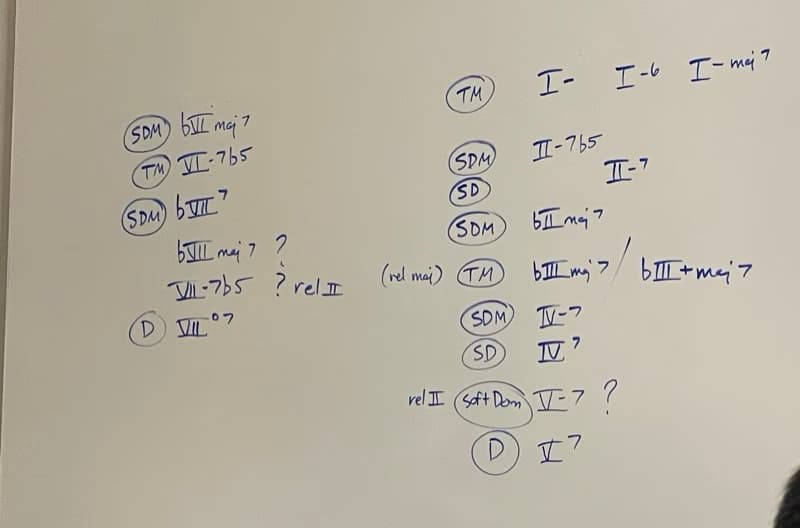 SDM bVI maj7
TM VI-7b5
SDM bVII7
bVII maj7 ?
VII-7b5 ? rel II
D VII°7
TM I- I-6 I-maj7
SDM II-7b5
SD II-7
SDM bII maj7
(rel maj) TM bIII maj7 / bIII+maj7
SDM IV-7
SD IV7
rel II Soft Dom V-7 ?
D V7